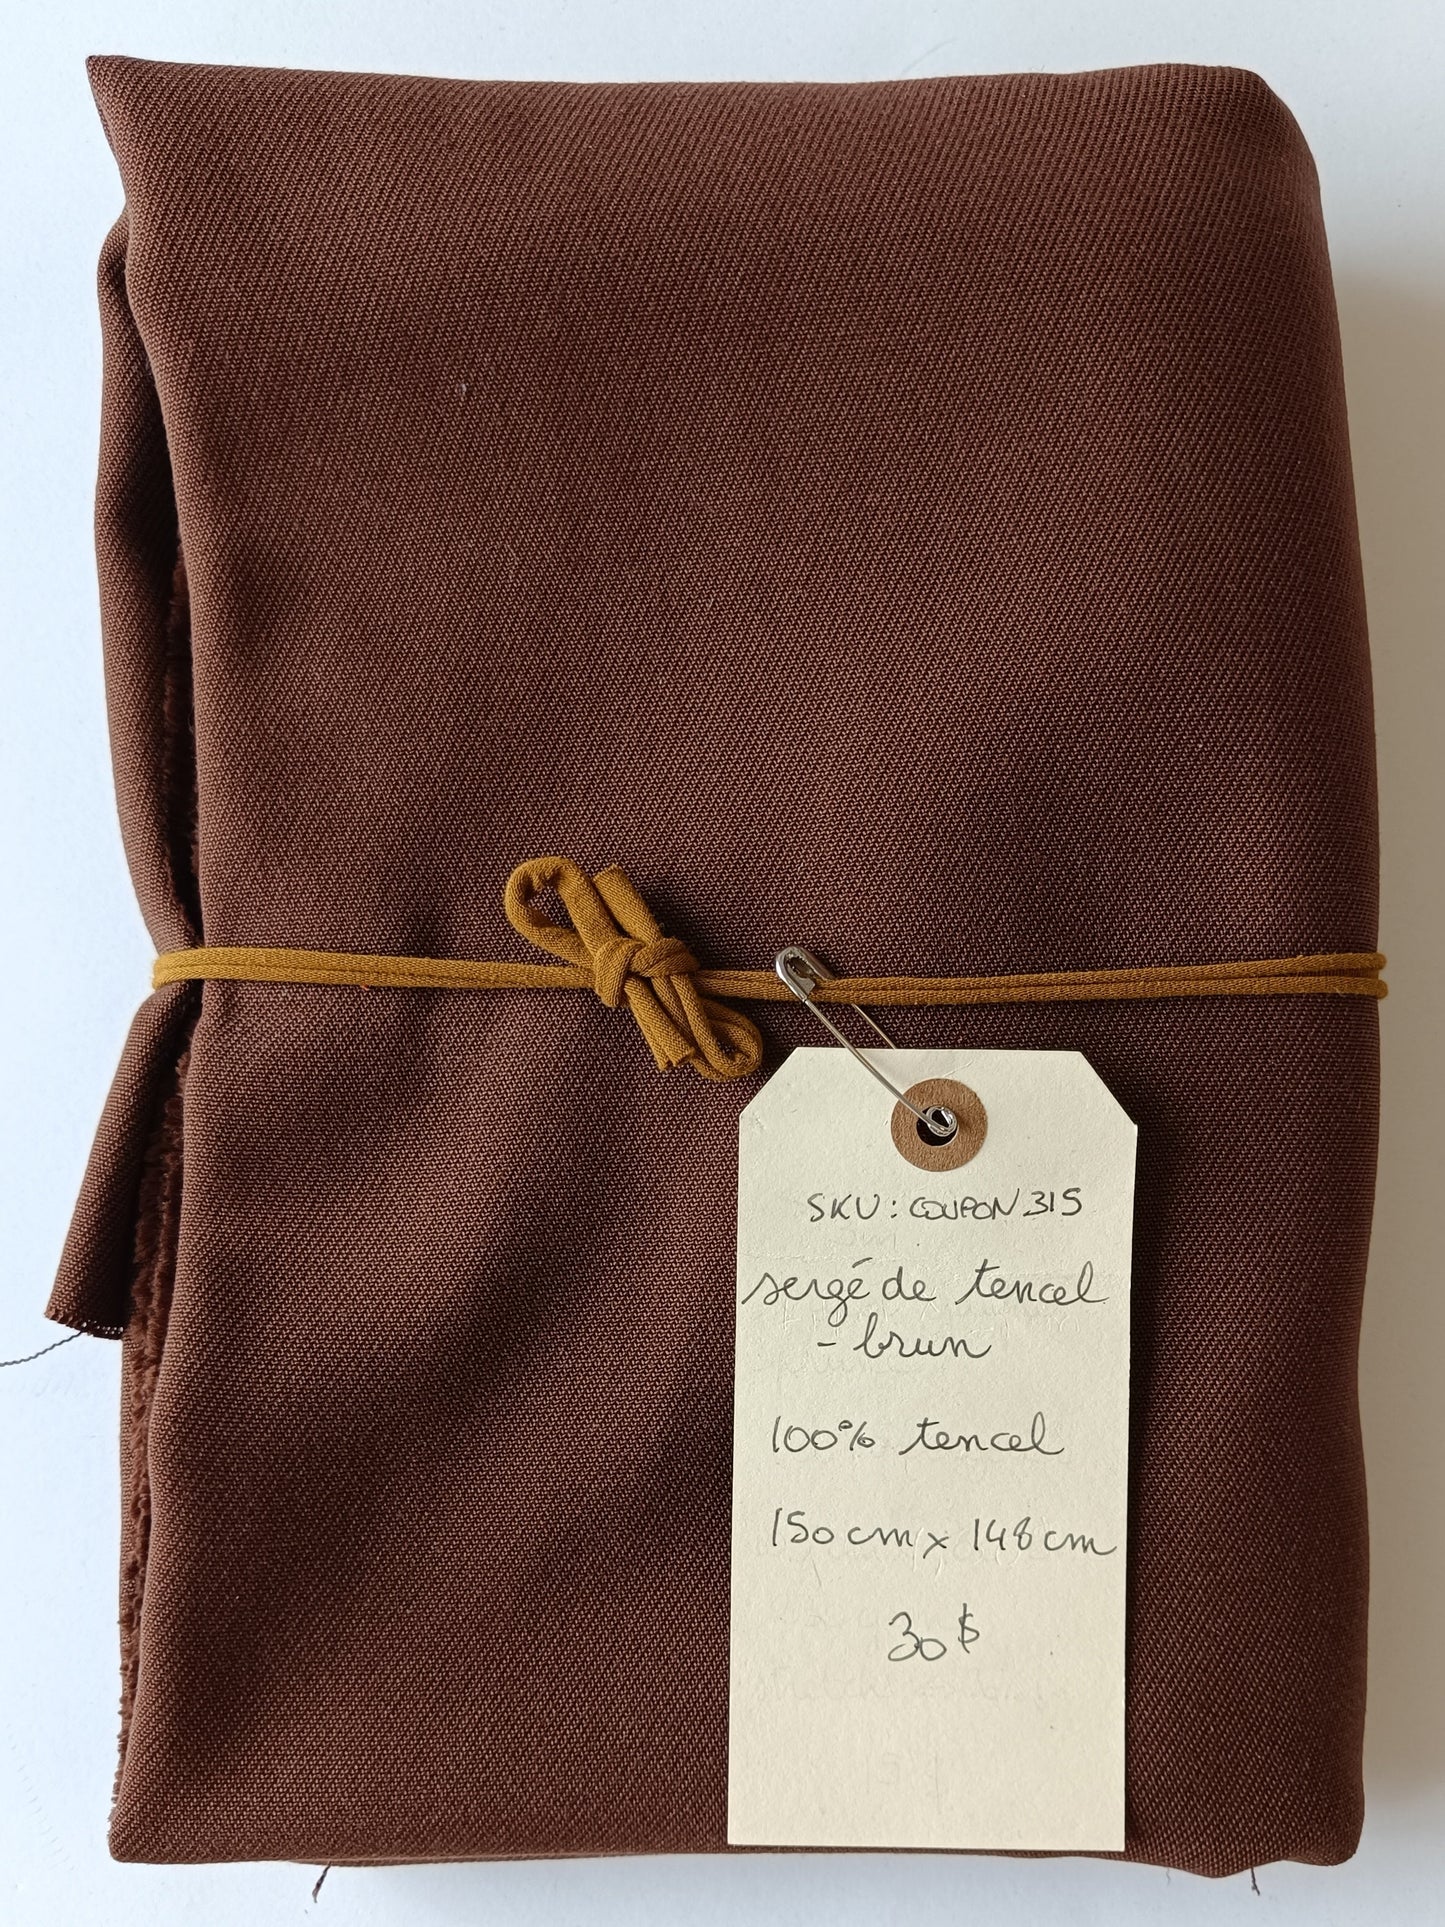 SKU: COUPON315
sergé de tencel
- brun
100% tencel
150 cm x 148 cm
30$